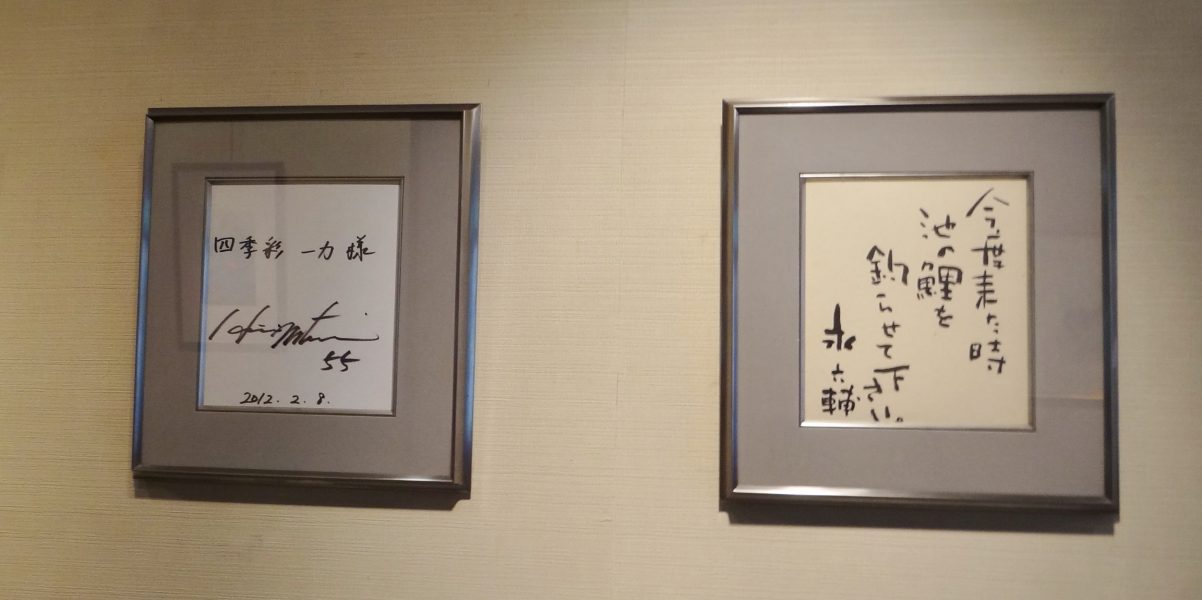 四季彩 一力 様
55
2012. 2. 8.
今度来た時
池の鯉を
釣らせて下さい。
永六輔